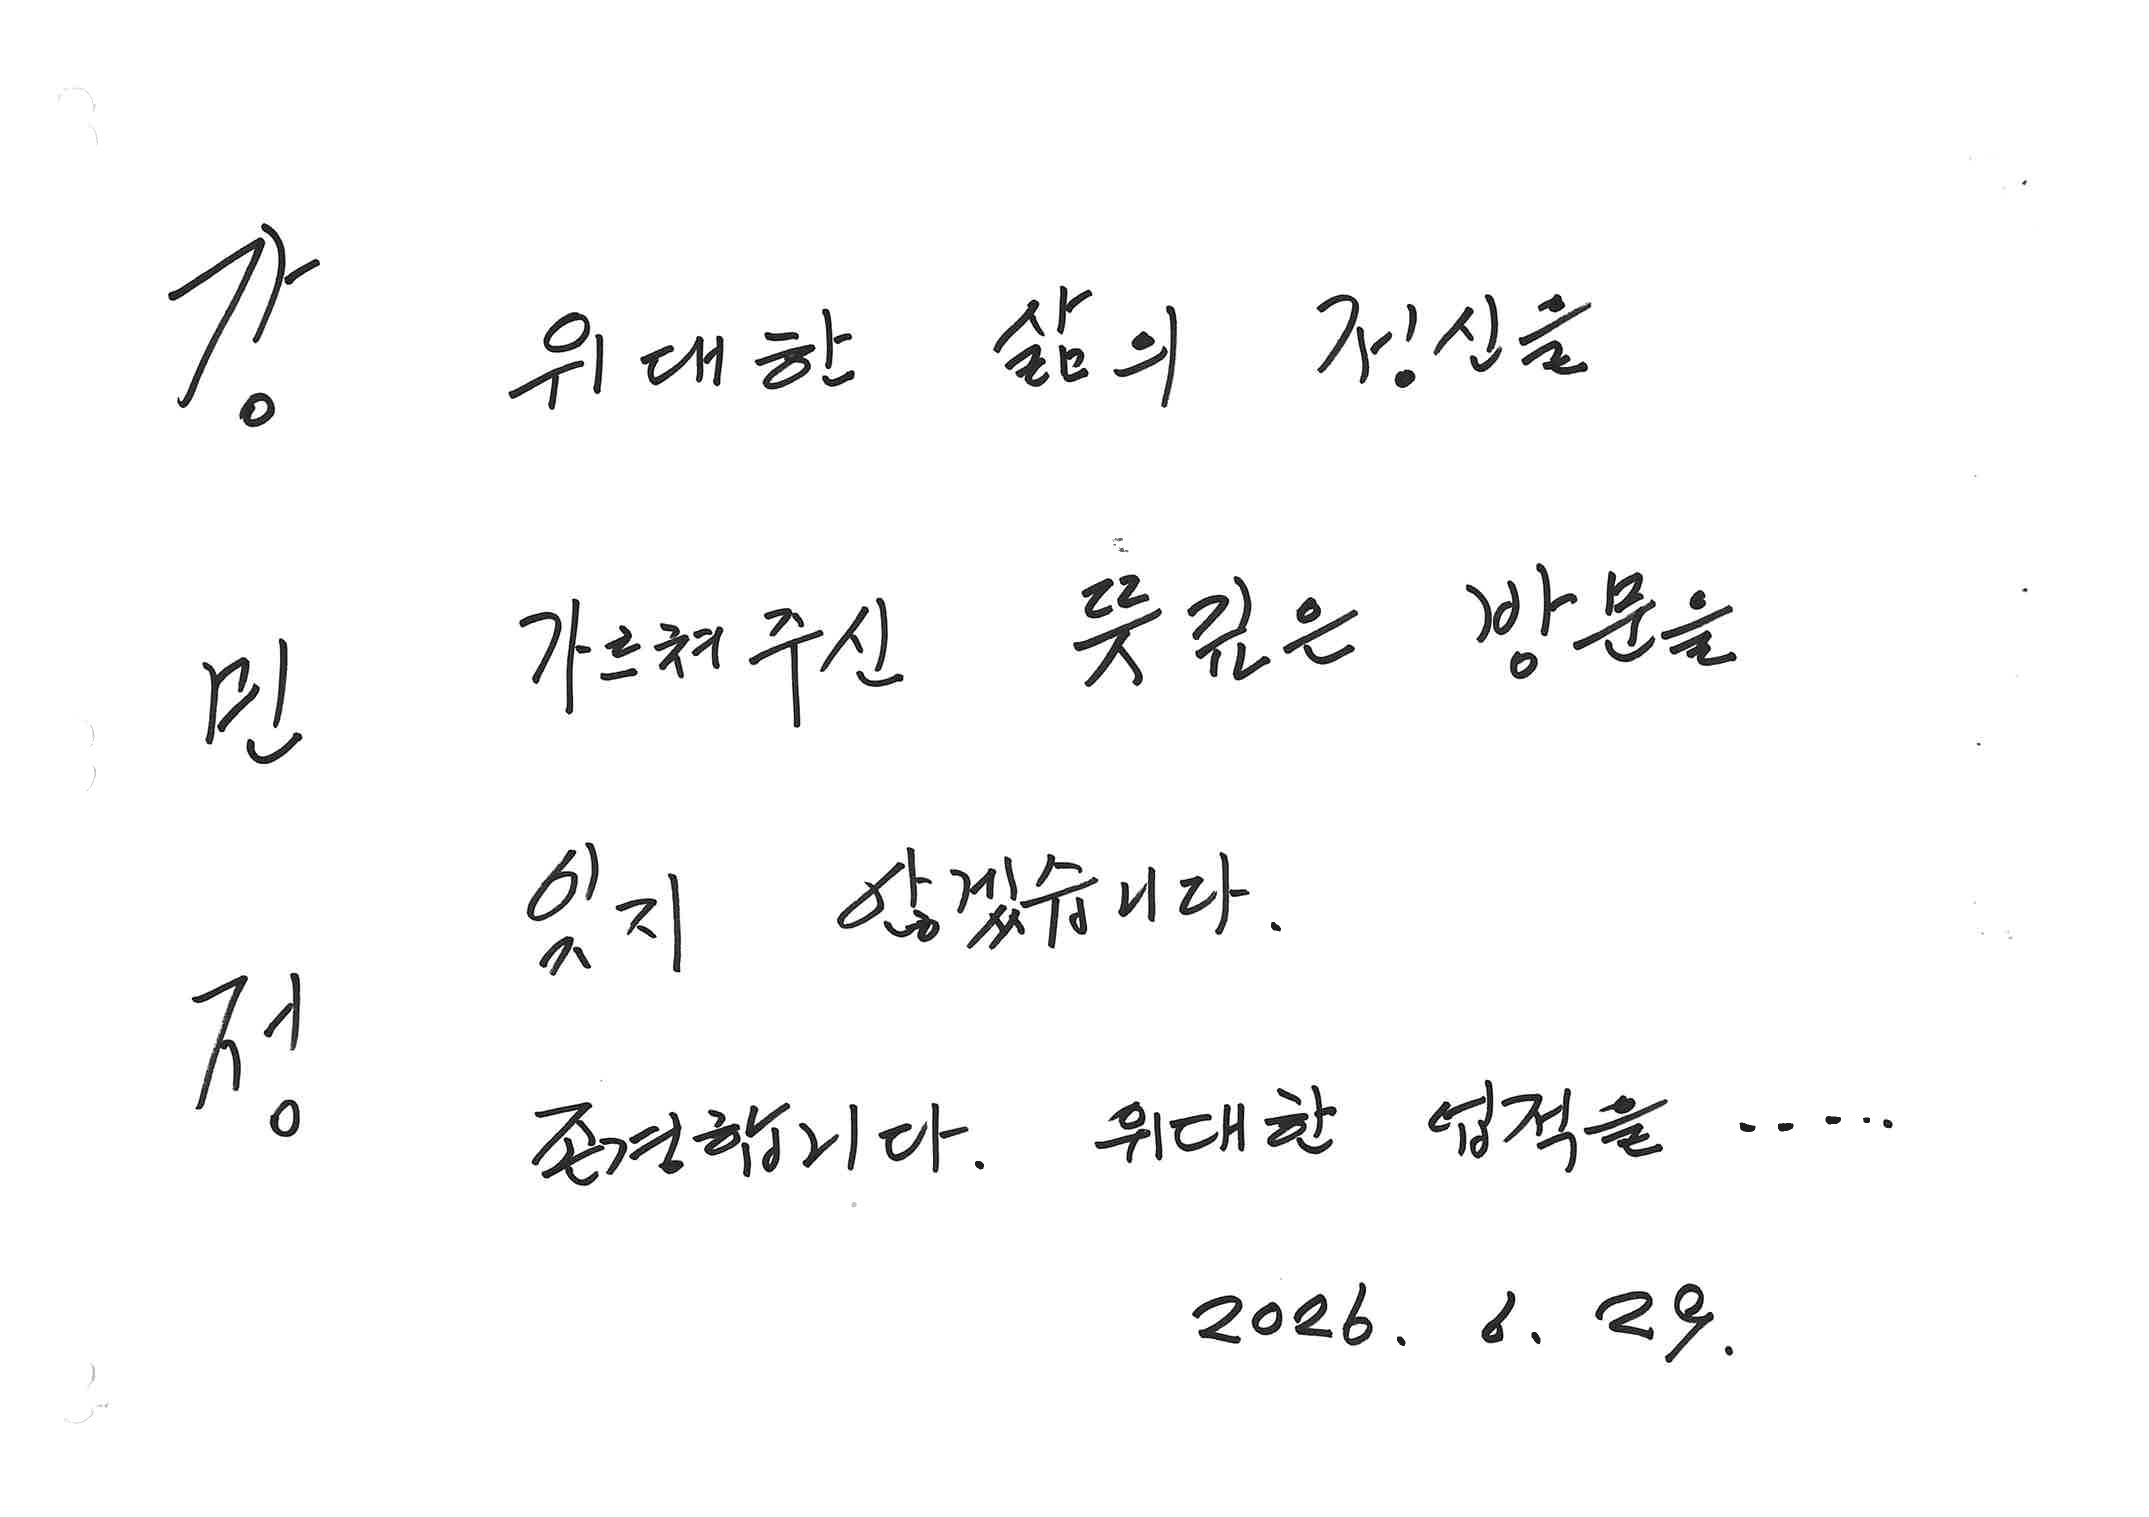 강민정
위대한 삶의 정신을
가르쳐주신 뜻깊은 방문을
잊지 않겠습니다.
존경합니다. 위대한 업적을 .....
2026. 6. 29.